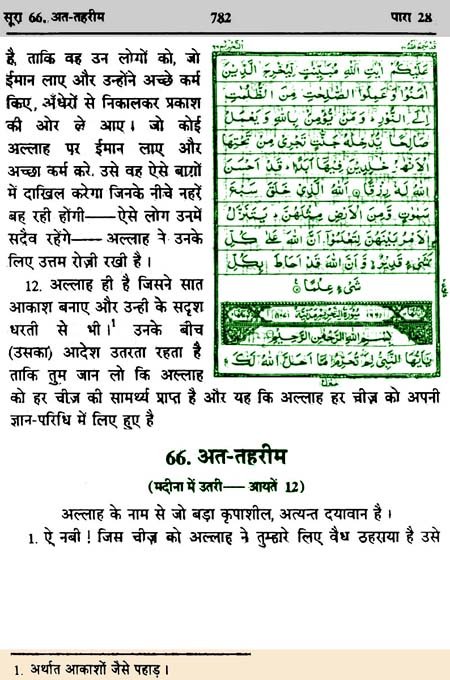 सूरा 66. अत-तहरीम
782
पारा 28
है, ताकि वह उन लोगों को, जो
ईमान लाए और उन्होंने अच्छे कर्म
किए, अँधेरों से निकालकर प्रकाश
की ओर ले आए। जो कोई
अल्लाह पर ईमान लाए और
अच्छा कर्म करे, उसे वह ऐसे बाग़ों
में दाख़िल करेगा जिनके नीचे नहरें
बह रही होंगी——ऐसे लोग उनमें
सदैव रहेंगे—— अल्लाह ने उनके
लिए उत्तम रोज़ी रखी है।
12. अल्लाह ही है जिसने सात
आकाश बनाए और उन्ही के सदृश
धरती से भी।¹ उनके बीच
(उसका) आदेश उतरता रहता है
ताकि तुम जान लो कि अल्लाह
عَلَيْكُمْ اٰيٰتِ اللّٰهِ مُبَيِّنٰتٍ لِّيُخْرِجَ الَّذِيْنَ
اٰمَنُوْا وَعَمِلُوا الصّٰلِحٰتِ مِنَ الظُّلُمٰتِ
اِلَى النُّوْرِ ؕ وَمَنْ يُّؤْمِنْۢ بِاللّٰهِ وَيَعْمَلْ
صَالِحًا يُّدْخِلْهُ جَنّٰتٍ تَجْرِيْ مِنْ تَحْتِهَا
الْاَنْهٰرُ خٰلِدِيْنَ فِيْهَاۤ اَبَدًا ؕ قَدْ اَحْسَنَ
اللّٰهُ لَهٗ رِزْقًا اَللّٰهُ الَّذِيْ خَلَقَ سَبْعَ
سَمٰوٰتٍ وَّمِنَ الْاَرْضِ مِثْلَهُنَّ ؕ يَتَنَزَّلُ
الْاَمْرُ بَيْنَهُنَّ لِتَعْلَمُوْۤا اَنَّ اللّٰهَ عَلٰى كُلِّ
شَيْءٍ قَدِيْرٌ وَّاَنَّ اللّٰهَ قَدْ اَحَاطَ بِكُلِّ
شَيْءٍ عِلْمًا
بِسْمِ اللّٰهِ الرَّحْمٰنِ الرَّحِيْمِ
يٰۤاَيُّهَا النَّبِيُّ لِمَ تُحَرِّمُ مَاۤ اَحَلَّ اللّٰهُ لَكَ
को हर चीज़ की सामर्थ्य प्राप्त है और यह कि अल्लाह हर चीज़ को अपनी
ज्ञान-परिधि में लिए हुए है
66. अत-तहरीम
(मदीना में उतरी—— आयतें 12)
अल्लाह के नाम से जो बड़ा कृपाशील, अत्यन्त दयावान है।
1. ऐ नबी ! जिस चीज़ को अल्लाह ने तुम्हारे लिए वैध ठहराया है उसे
1. अर्थात आकाशों जैसे पहाड़।